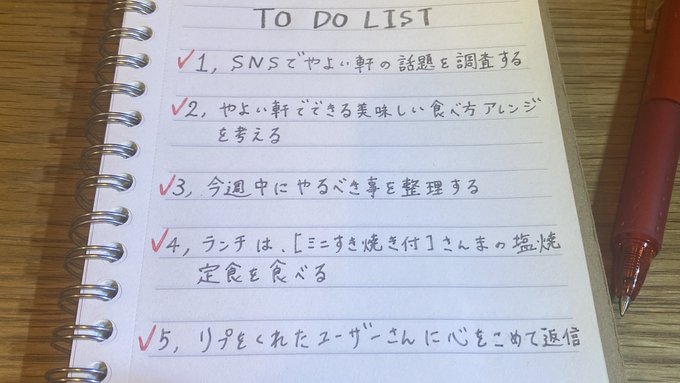 TO DO LIST
✓1, SNSでやよい軒の話題を調査する
✓2, やよい軒でできる美味しい食べ方アレンジ
を考える
✓3, 今週中にやるべき事を整理する
✓4, ランチは、[ミニすき焼き付]さんまの塩焼
定食を食べる
✓5, リプをくれたユーザーさんに心をこめて返信